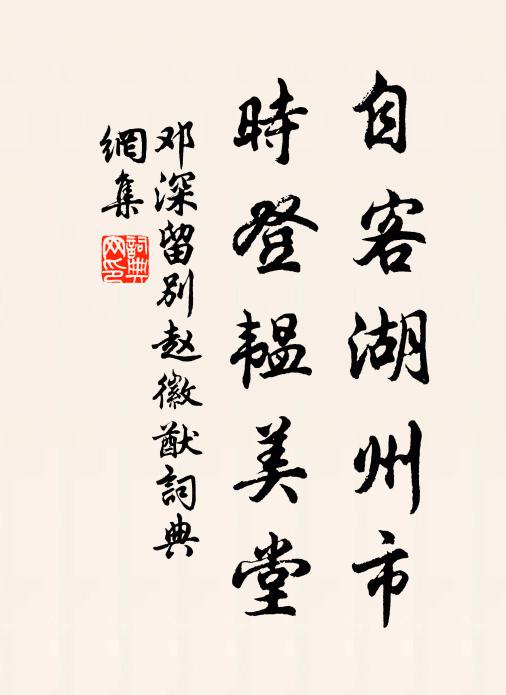 自客湖州市
時登韞美堂
邓深留别赵徽猷詞典
網集
詞典
网印